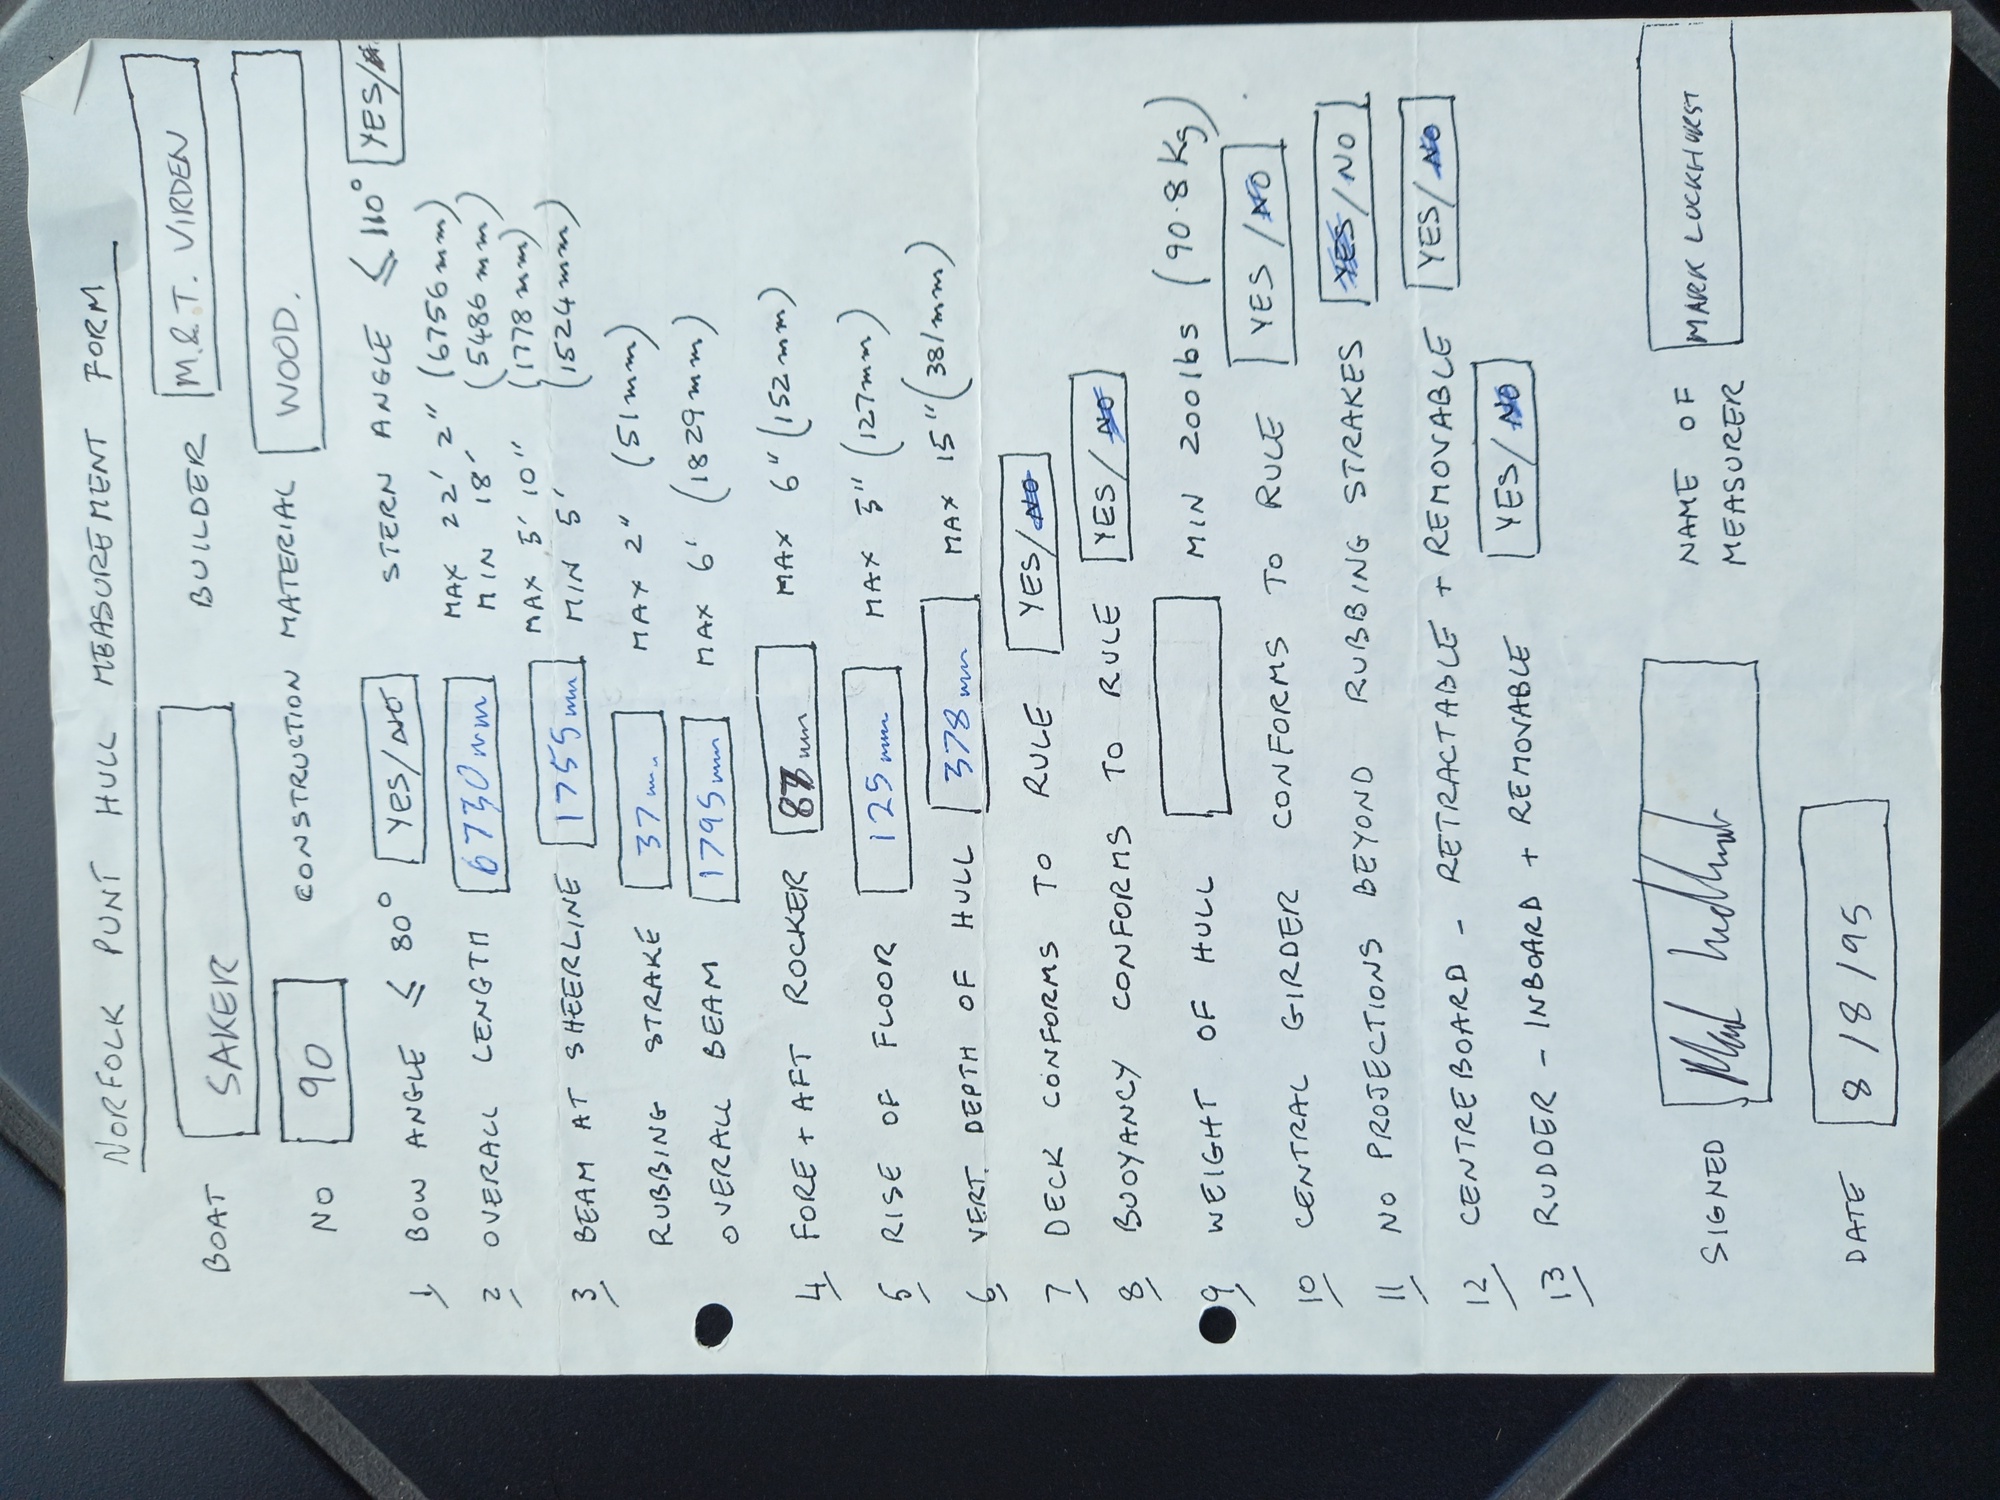 NORFOLK PUNT HULL MEASUREMENT FORM
BOAT SAKER BUILDER M.& T. VIRDEN
NO 90 CONSTRUCTION MATERIAL WOOD.
1/ BOW ANGLE ≤ 80° YES/NO STERN ANGLE ≤ 110° YES/
2/ OVERALL LENGTH 6730mm MAX 22' 2" (6756mm)
MIN 18' (5486mm)
3/ BEAM AT SHEERLINE 1755mm MAX 5' 10" (1778mm)
MIN 5' (1524mm)
RUBBING STRAKE 37mm MAX 2" (51mm)
OVERALL BEAM 1795mm MAX 6' (1829mm)
4/ FORE + AFT ROCKER mm MAX 6" (152mm)
5/ RISE OF FLOOR 125mm MAX 5" (127mm)
6/ VERT. DEPTH OF HULL 378mm MAX 15" (381mm)
7/ DECK CONFORMS TO RULE YES/NO
8/ BUOYANCY CONFORMS TO RULE YES/NO
9/ WEIGHT OF HULL MIN 200lbs (90.8Kg)
10/ CENTRAL GIRDER CONFORMS TO RULE YES/NO
11/ NO PROJECTIONS BEYOND RUBBING STRAKES YES/NO
12/ CENTREBOARD - RETRACTABLE + REMOVABLE YES/NO
13/ RUDDER - INBOARD + REMOVABLE YES/NO
SIGNED NAME OF MEASURER MARK LUCKHURST
DATE 8/8/95